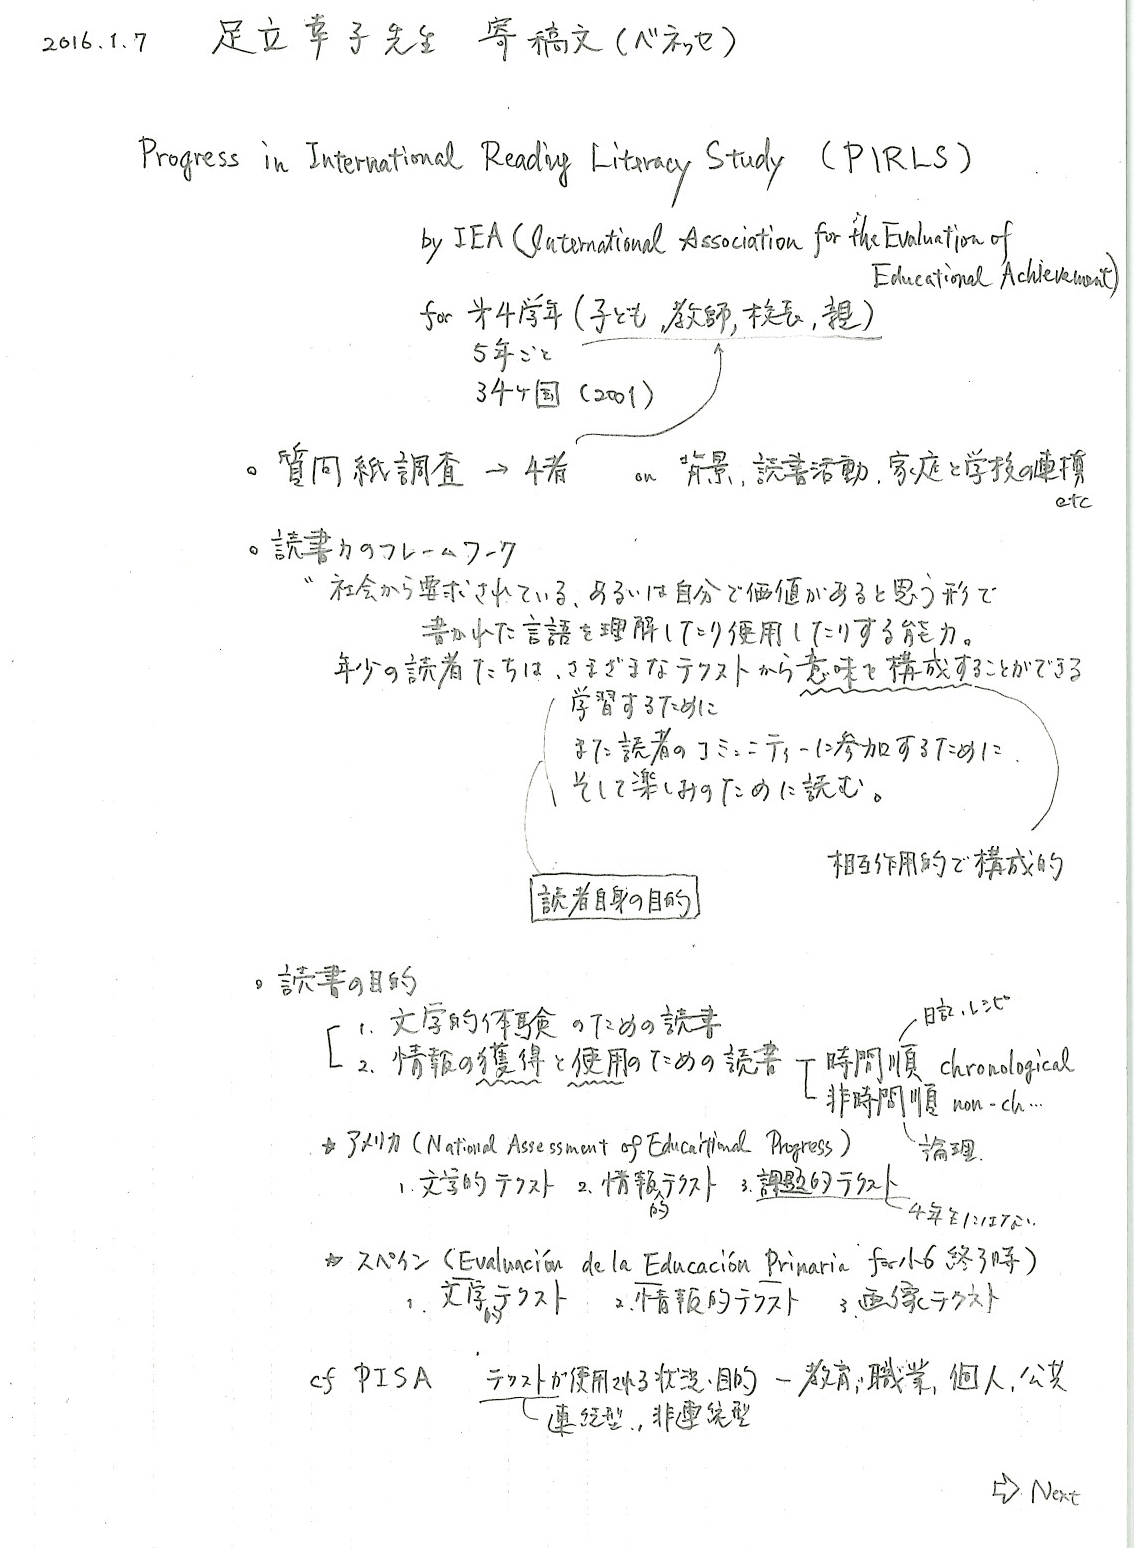 2016.1.7 足立幸子先生 寄稿文(ベネッセ)
Progress in International Reading Literacy Study (PIRLS)
by IEA (International Association for the Evaluation of
Educational Achievement)
for 第4学年(子ども,教師,校長,親)
5年ごと
34ヶ国 (2001)
。質問紙調査 → 4者 on 背景、読書活動、家庭と学校の連携
etc
。読書力のフレームワーク
"社会から要求されている、あるいは自分で価値があると思う形で
書かれた言語を理解したり使用したりする能力。
年少の読者たちは、さまざまなテクストから意味を構成することができる
学習するために
また読者のコミュニティーに参加するために、
そして楽しみのために読む。
相互作用的で構成的
読者自身の目的
。読書の目的
日記、レシピ
1. 文学的体験のための読書
2. 情報の獲得と使用のための読書 時間順 chronological
非時間順 non-ch…
☆ アメリカ (National Assessment of Educational Progress) 論理
1. 文学的テクスト 2. 情報的テクスト 3. 課題的テクスト
4年生にはない
☆ スペイン (Evaluación de la Educación Primaria for 小6終了時)
1. 文学的テクスト 2. 情報的テクスト 3. 画像テクスト
cf PISA テクストが使用される状況・目的 — 教育、職業、個人、公共
連続型、非連続型
⇨ Next